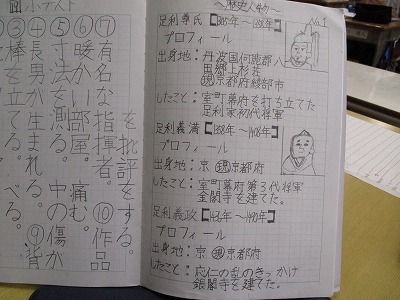 ～歴史人物～
No.1
足利尊氏【1305年～1358年】
プロフィール
出身地：丹波国何鹿郡八
田郷上杉荘
現京都府綾部市
したこと：室町幕府を打ち立てた
足利家初代将軍
足利義満【1358年～1408年】
プロフィール
出身地：京 現京都府
したこと：室町幕府第3代将軍
金閣寺を建てた。
足利義政【1436年～1490年】
プロフィール
出身地：京 現京都府
したこと：応仁の乱のきっかけ
銀閣寺を建てた。
小テスト
を批評をする。
⑦有名な指揮者。⑩作品
⑥暖かい部屋。痛む。
⑤寸法を測る。中の傷が
④長男が生まれる。⑨背
③棒を立てる。べる。